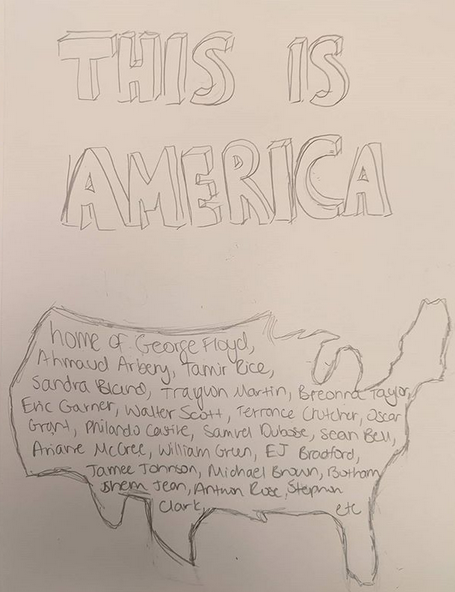 THIS IS
AMERICA
home of George Floyd,
Ahmaud Arbery, Tamir Rice,
Sandra Bland, Trayvon Martin, Breonna Taylor,
Eric Garner, Walter Scott, Terrance Crutcher, Oscar
Grant, Philando Castile, Samuel Dubose, Sean Bell,
Ariane McCree, William Green, EJ Bradford,
Jamee Johnson, Michael Brown, Botham
Shem Jean, Antwon Rose, Stephon
Clark, etc